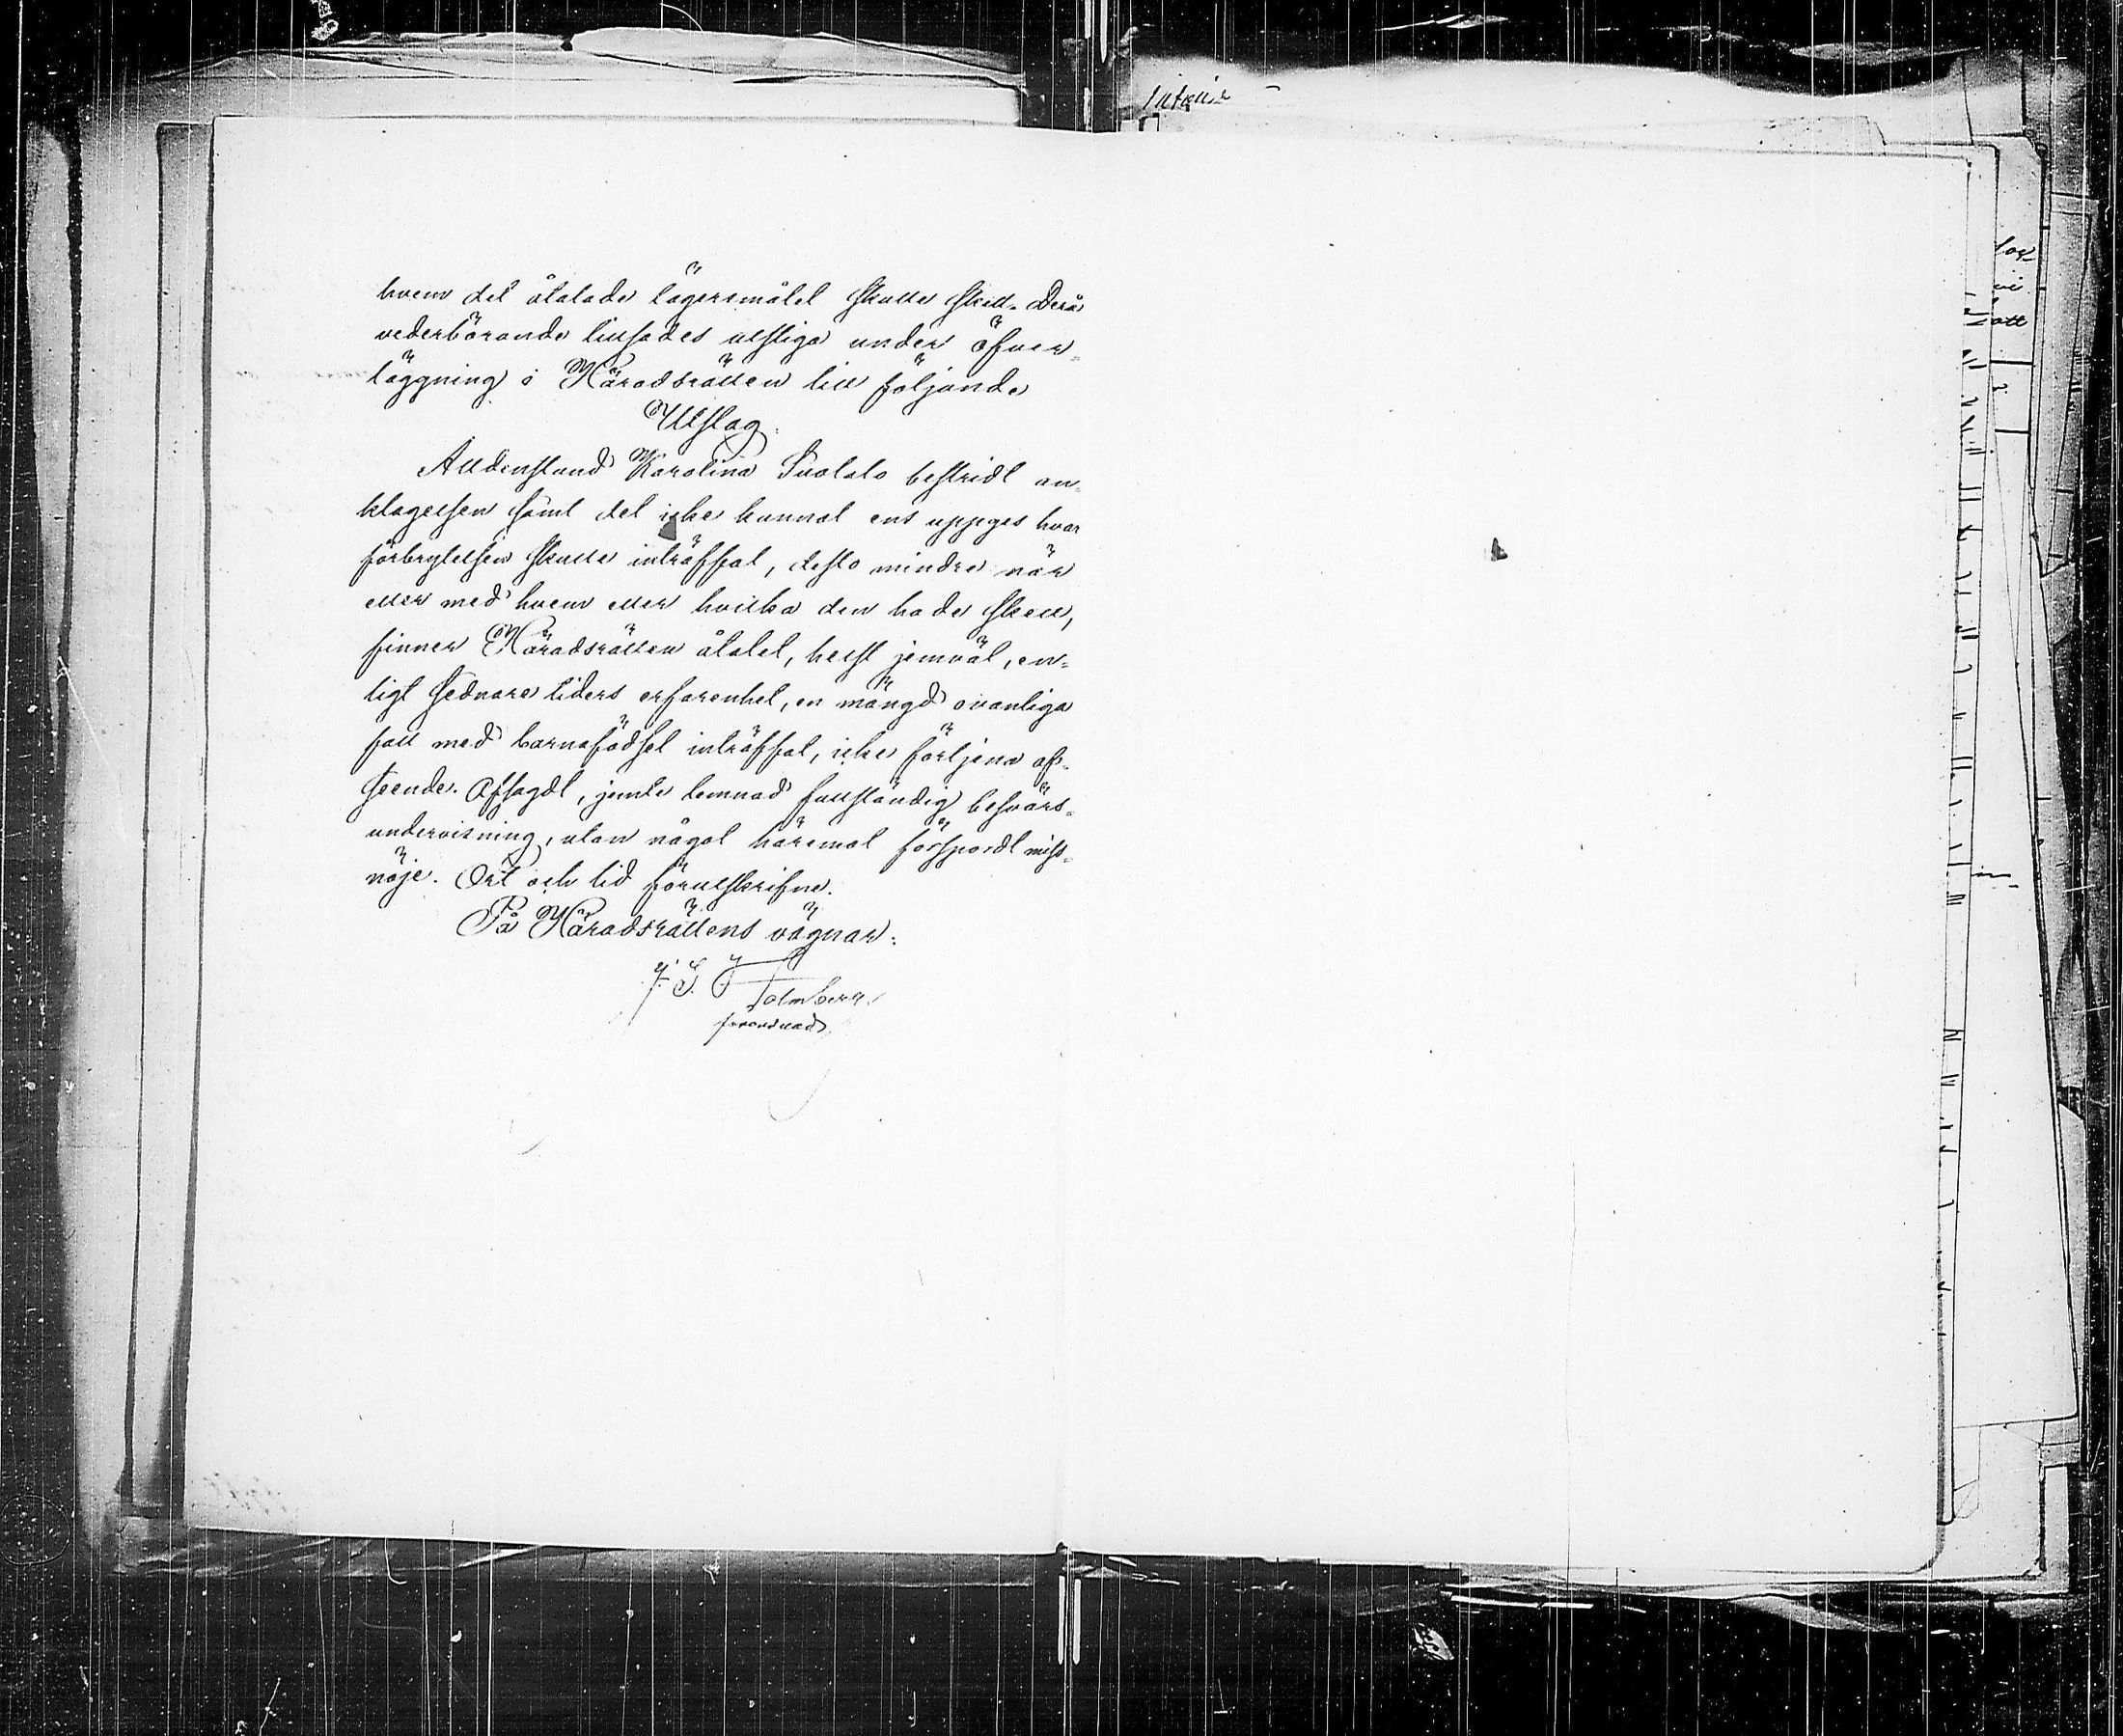 hvem det åtalade lägersmålet skulle skett. Derå
vederbörande tillsades utstiga under öfver-
läggning i Häradsrätten till följande
Utslag.
Alldenstund Karolina Suolalo bestridt an-
klagelsen samt det icke kunnat ens uppges hvar
förbrytelsen skulle inträffat, desto mindre när
eller med hvem eller hvilka den hade skett,
finner Häradsrätten åtalet, helst jemväl, en-
ligt sednare tiders erfarenhet, en mängd ovanliga
fall med barnafödsel inträffat, icke förtjena af-
seende. Afsagdt, jemte lemnad fullständig besvärs-
undervisning, utan något häremot förspordt miss-
nöje. Ort och tid förutskrifne.
På Häradsrättens vägnar:
förordnad